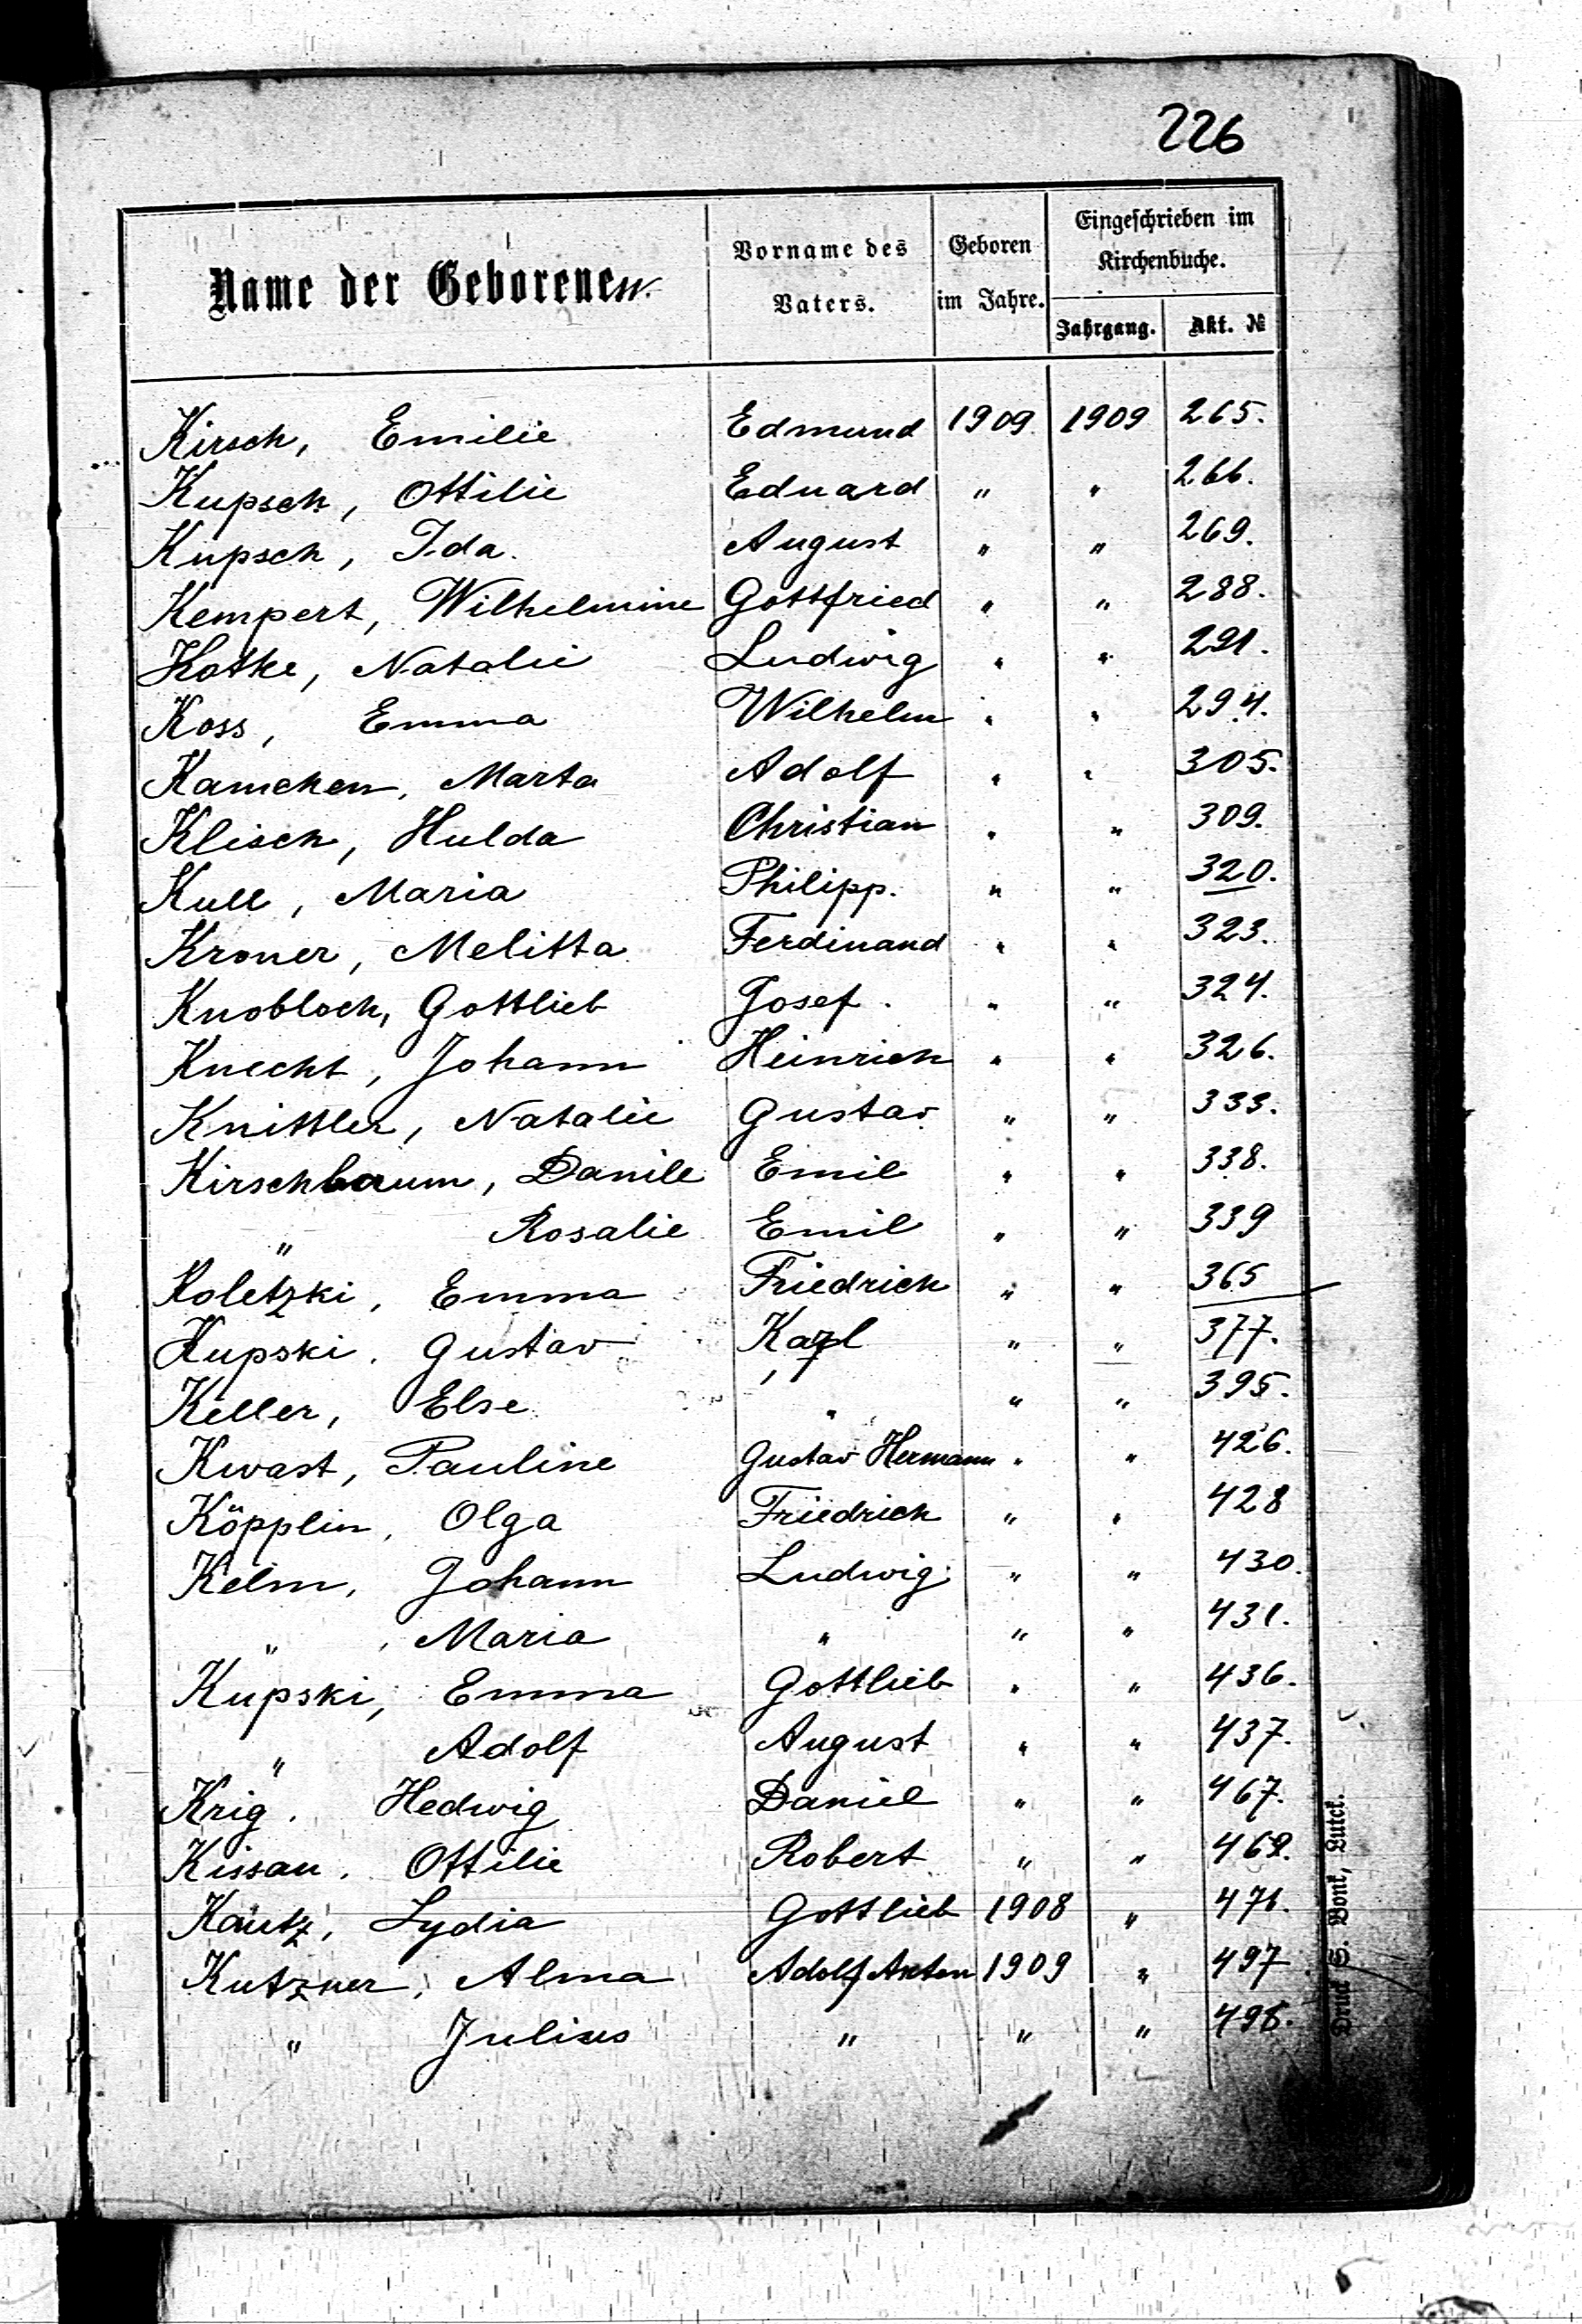 226
Name der Geborenen.
Vorname des Vaters.
Geboren im Jahre.
Eingeschrieben im Kirchenbuche.
Jahrgang.
Akt. №
Kirsch, Emilie Edmund 1909 1909 265.
Kupsch, Ottilie Eduard " " 266.
Kupsch, Ida. August " " 269.
Kempert, Wilhelmine Gottfried " " 288.
Kotke, Natalie Ludwig " " 291.
Koss, Emma Wilhelm " " 294.
Kamchen, Marta Adolf " " 305.
Klisch, Hulda Christian " " 309.
Kull, Maria Philipp. " " 320.
Kroner, Melitta Ferdinand " " 323.
Knobloch, Gottlieb Josef. " " 324.
Knecht, Johann Heinrich " " 326.
Knittler, Natalie Gustav " " 333.
Kirschbaum, Danile Emil " " 338.
" Rosalie Emil " " 339
Koletzki, Emma Friedrich " " 365
Kupski. Gustav Karl " " 377.
Keller, Else " " " 395.
Kwast, Pauline Gustav Hermann " " 426.
Köpplin, Olga Friedrich " " 428
Kelm, Johann Ludwig " " 430.
" , Maria " " " 431.
Kupski, Emma Gottlieb " " 436.
" Adolf August " " 437.
Krig. Hedwig Daniel " " 467.
Kissau. Ottilie Robert " " 468.
Kautz, Lydia Gottlieb 1908 " 471.
Kutzner, Alma Adolf Anton 1909 " 497
" Julius " " " 498.
Druck S. Bonk, Luck.